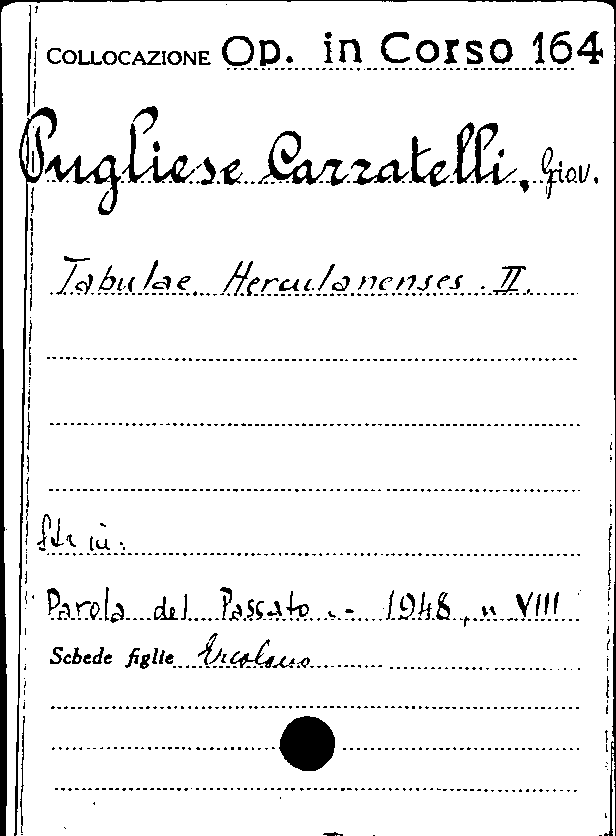 COLLOCAZIONE Op. in Corso 164
Pugliese Carratelli, Giov.
Tabulae Herculanenses. II.
Estr. in:
Parola del Passato .- 1948, n VIII
Schede figlie Ercolano